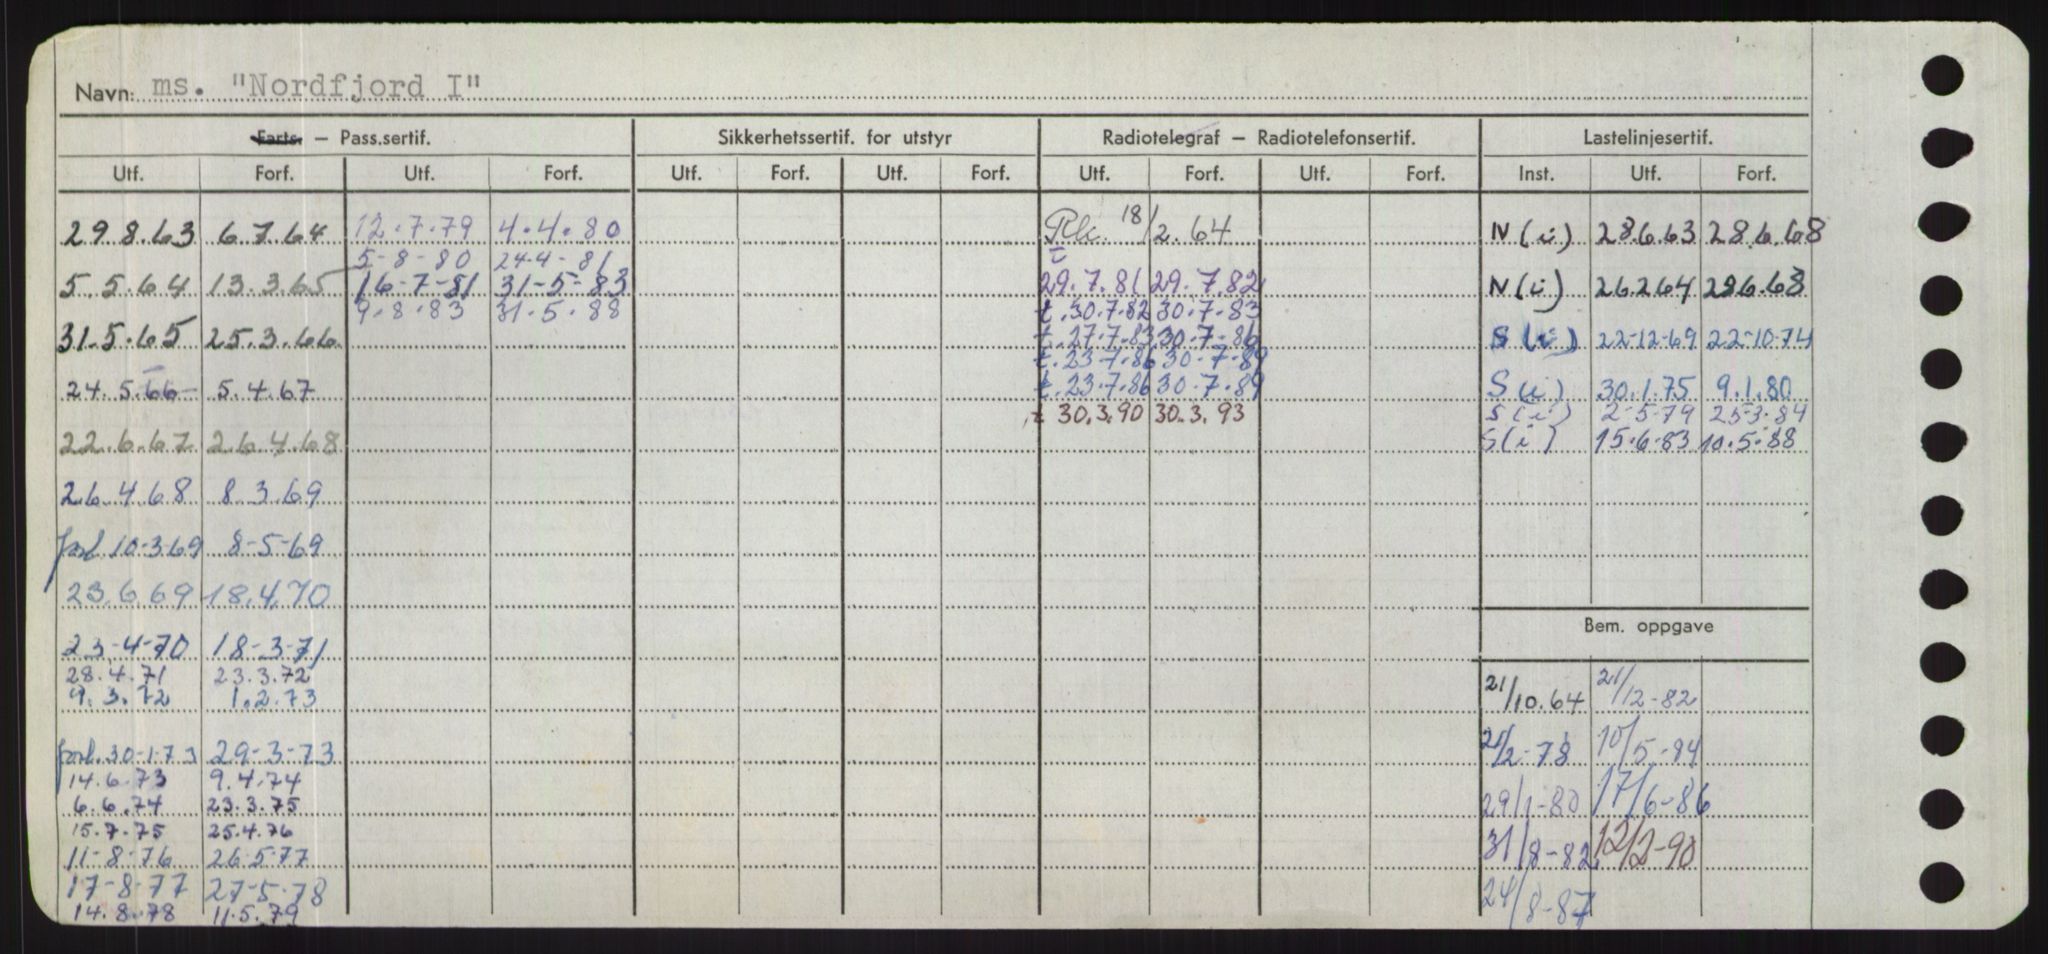 Navn: ms. "Nordfjord I"
Farts. – Pass.sertif. Sikkerhetssertif. for utstyr Radiotelegraf – Radiotelefonsertif. Lastelinjesertif.
Utf. Forf. Utf. Forf. Utf. Forf. Utf. Forf. Utf. Forf. Utf. Forf. Inst. Utf. Forf.
29.8.63 6.7.64 12.7.79 4.4.80 Rk. 18/2.64 N(i) 28.6.63 28.6.68
5-8-80 24.4-81
5.5.64 13.3.65 16-7-81 31-5-83 29.7.81 29.7.82 N(i) 26.2.64 28.6.68
9.8.83 31.5.88 t.30.7.82 30.7.83
31.5.65 25.3.66 t.27.7.83 30.7.86 S(i) 22-12-69 22-10-74
t.23-7.86 30-7-89
24.5.66 5.4.67 t.23.7.86 30.7.89 S(i) 30.1.75 9.1.80
t 30.3.90 30.3.93 S(i) 2-5-79 25-3-84
22.6.67 26.4.68 S(i) 15.6.83 10.5.88
26.4.68 8.3.69
forl. 10-3-69 8-5-69
23.6.69 18.4.70
Bem. oppgave
23-4-70 18-3-71
28.4.71 23.3.72
9.3.72 1.2.73 21/10.64 21/12-82
forl. 30-1-73 29-3-73 21/2-78 10/5-84
14.6.73 9.4.74
6.6.74 23.3.75 29/1-80 17/6-86
15.7.75 25.4.76
11-8-76 26.5-77 31/8-82 12/2-90
17-8-77 27-5-78
14.8.78 11.5.79 24/8-87